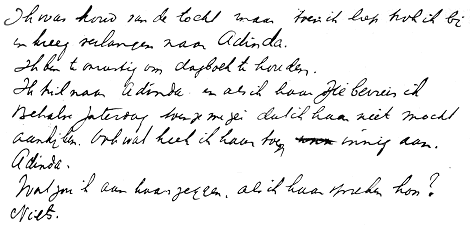 Ik was koud van de tocht maar toen ik liep trok ik bij
en kreeg verlangen naar Adinda.
Ik ben te onrustig om dagboek te houden.
Ik tril naar Adinda en als ik haar zie beven ik
Behalve Zaterdag toen ze me zei dat ik haar niet mocht
aankijken. Och wat keek ik haar toen innig aan.
Adinda.
Wat zou ik aan haar zeggen, als ik haar spreken kon?
Niets.